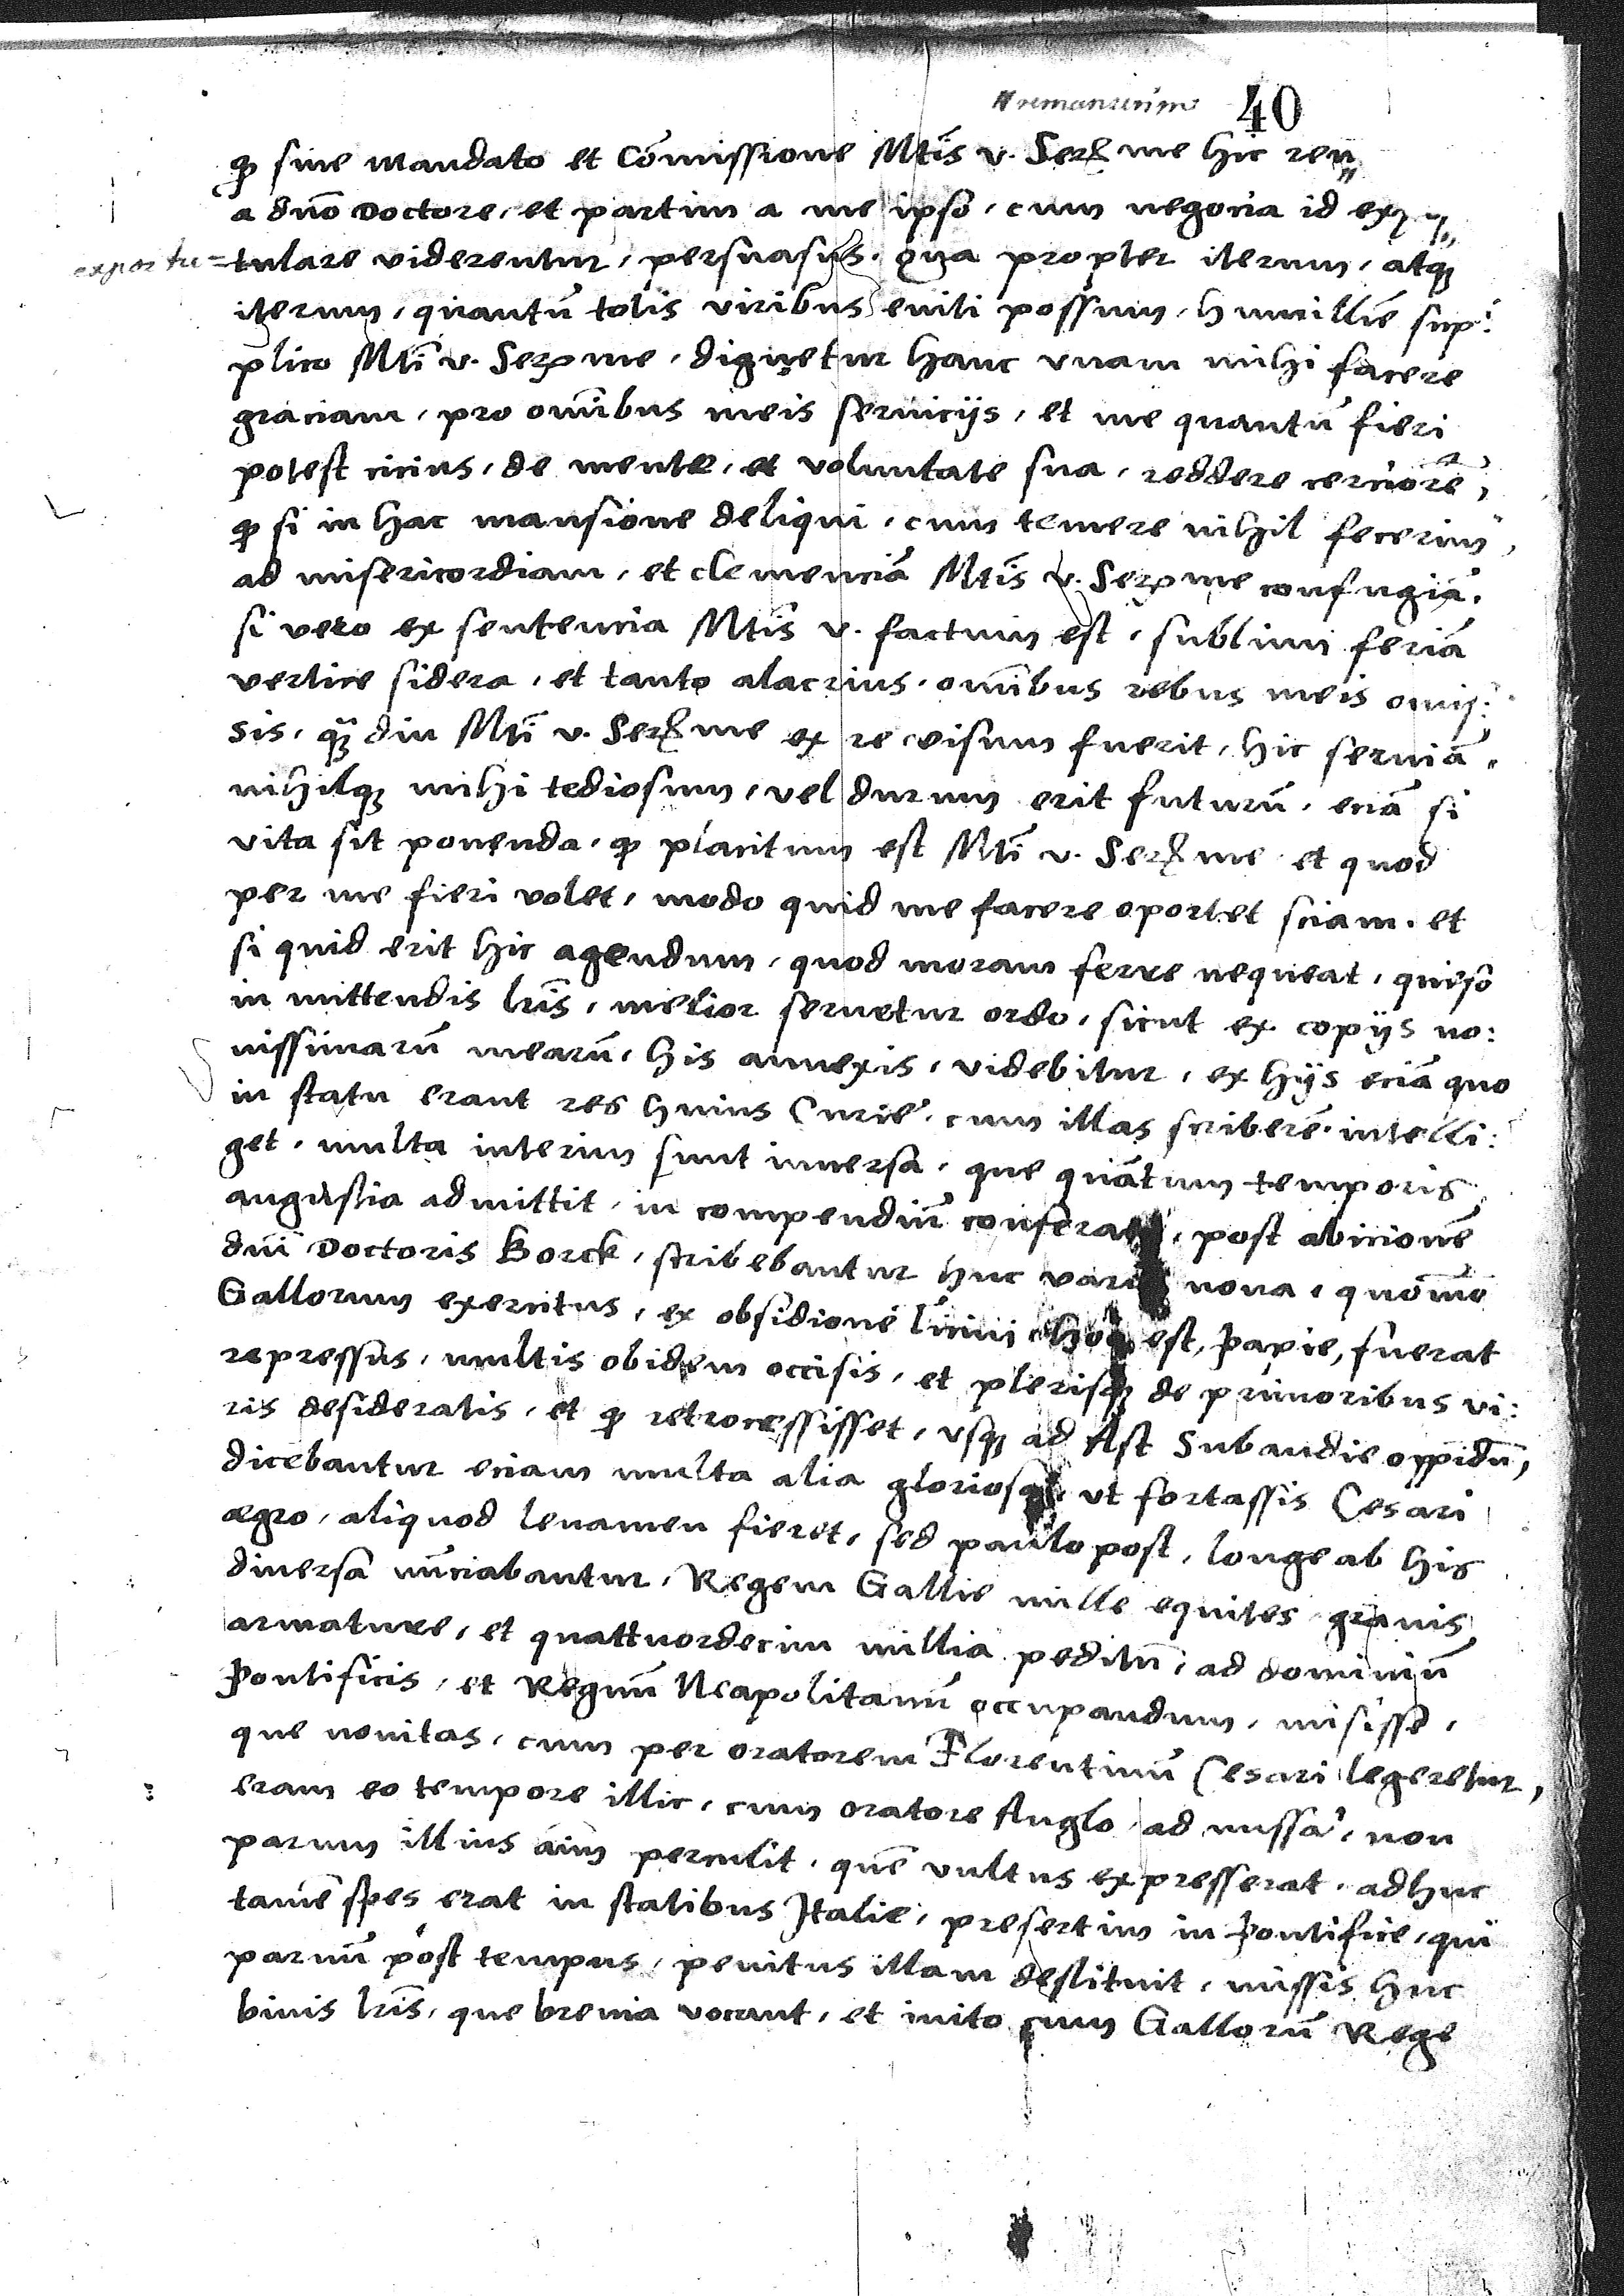 remanserim 40
ꝙ sine mandato et Comissione Mtis v. Serme hic rem
a dno Doctore, et partim a me ipso, cum negocia id ex
expostu= tulare viderentur, persuasus. qua propter iterum, atqꝫ
iterum, quantū totis viribus eniti possum, humillie sup:
plico Mti v. Serme, dignetur hanc vnam mihi facere
graciam, pro omibus meis seruicijs, et me quantū fieri
potest cicius, de mente, et voluntate sua, reddere cerciorē,
ꝙ si in hac mansione deliqui, cum temere nihil fecerim,
ad misericordiam, et clemenciā Mtis v. Serme confugiā.
si vero ex sentencia Mtis v. factum est, sublimi feriā
vertice sidera, et tanto alacrius, omibus rebus meis omis:
sis, qꝫ diu Mti v. Serme ex re visum fuerit, hic seruiā,
nihilqꝫ mihi tediosum, vel durum erit futurū, eciā si
vita sit ponenda, ꝙ placitum est Mti v. Serme et quod
per me fieri volet, modo quid me facere oportet sciam. et
si quid erit hic agendum, quod moram ferre nequeat, queso
in mittendis lris, melior seruetur ordo, sicut ex copijs no:
uissimarū mearū, his annexis, videbitur, ex hijs eciā quo
in statu erant res huius Curie, cum illas scriberē, intelli:
get, multa interim sunt inuersa, que quātum temporis
angustia admittit, in compendiū conferam, post abicionē
dni Doctoris Borck, scribebantur huc varia noua, quomo
Gallorum exercitus, ex obsidione Ticini hoc est, Papie, fuerat
repressus, multis obidem occisis, et plerisqꝫ de primoribus vi:
ris desideratis, et ꝙ retrocessisset, vsqꝫ ad Ast Subaudie oppidū,
dicebantur eciam multa alia gloriosa, vt fortassis Cesari
ægro, aliquod leuamen fieret, sed paulo post, longe ab his
diuersa nūciabantur, Regem Gallie mille equites grauis
armature, et quattuordecim millia peditū, ad dominiū
Pontificis, et Regnū Neapolitanū occupandum, misisse,
que nouitas, cum per oratorem Florentinū Cesari legeretur,
eram eo tempore illic, cum oratore Anglo, ad missā, non
parum illius aīm perculit, quē vultus expresserat, adhuc
tamē spes erat in statibus Italie, presertim in Pontifice, qui
paruū post tempus, penitus illam destituit, missis huc
binis lris, que breuia vocant, et inito cum Gallorū Rege